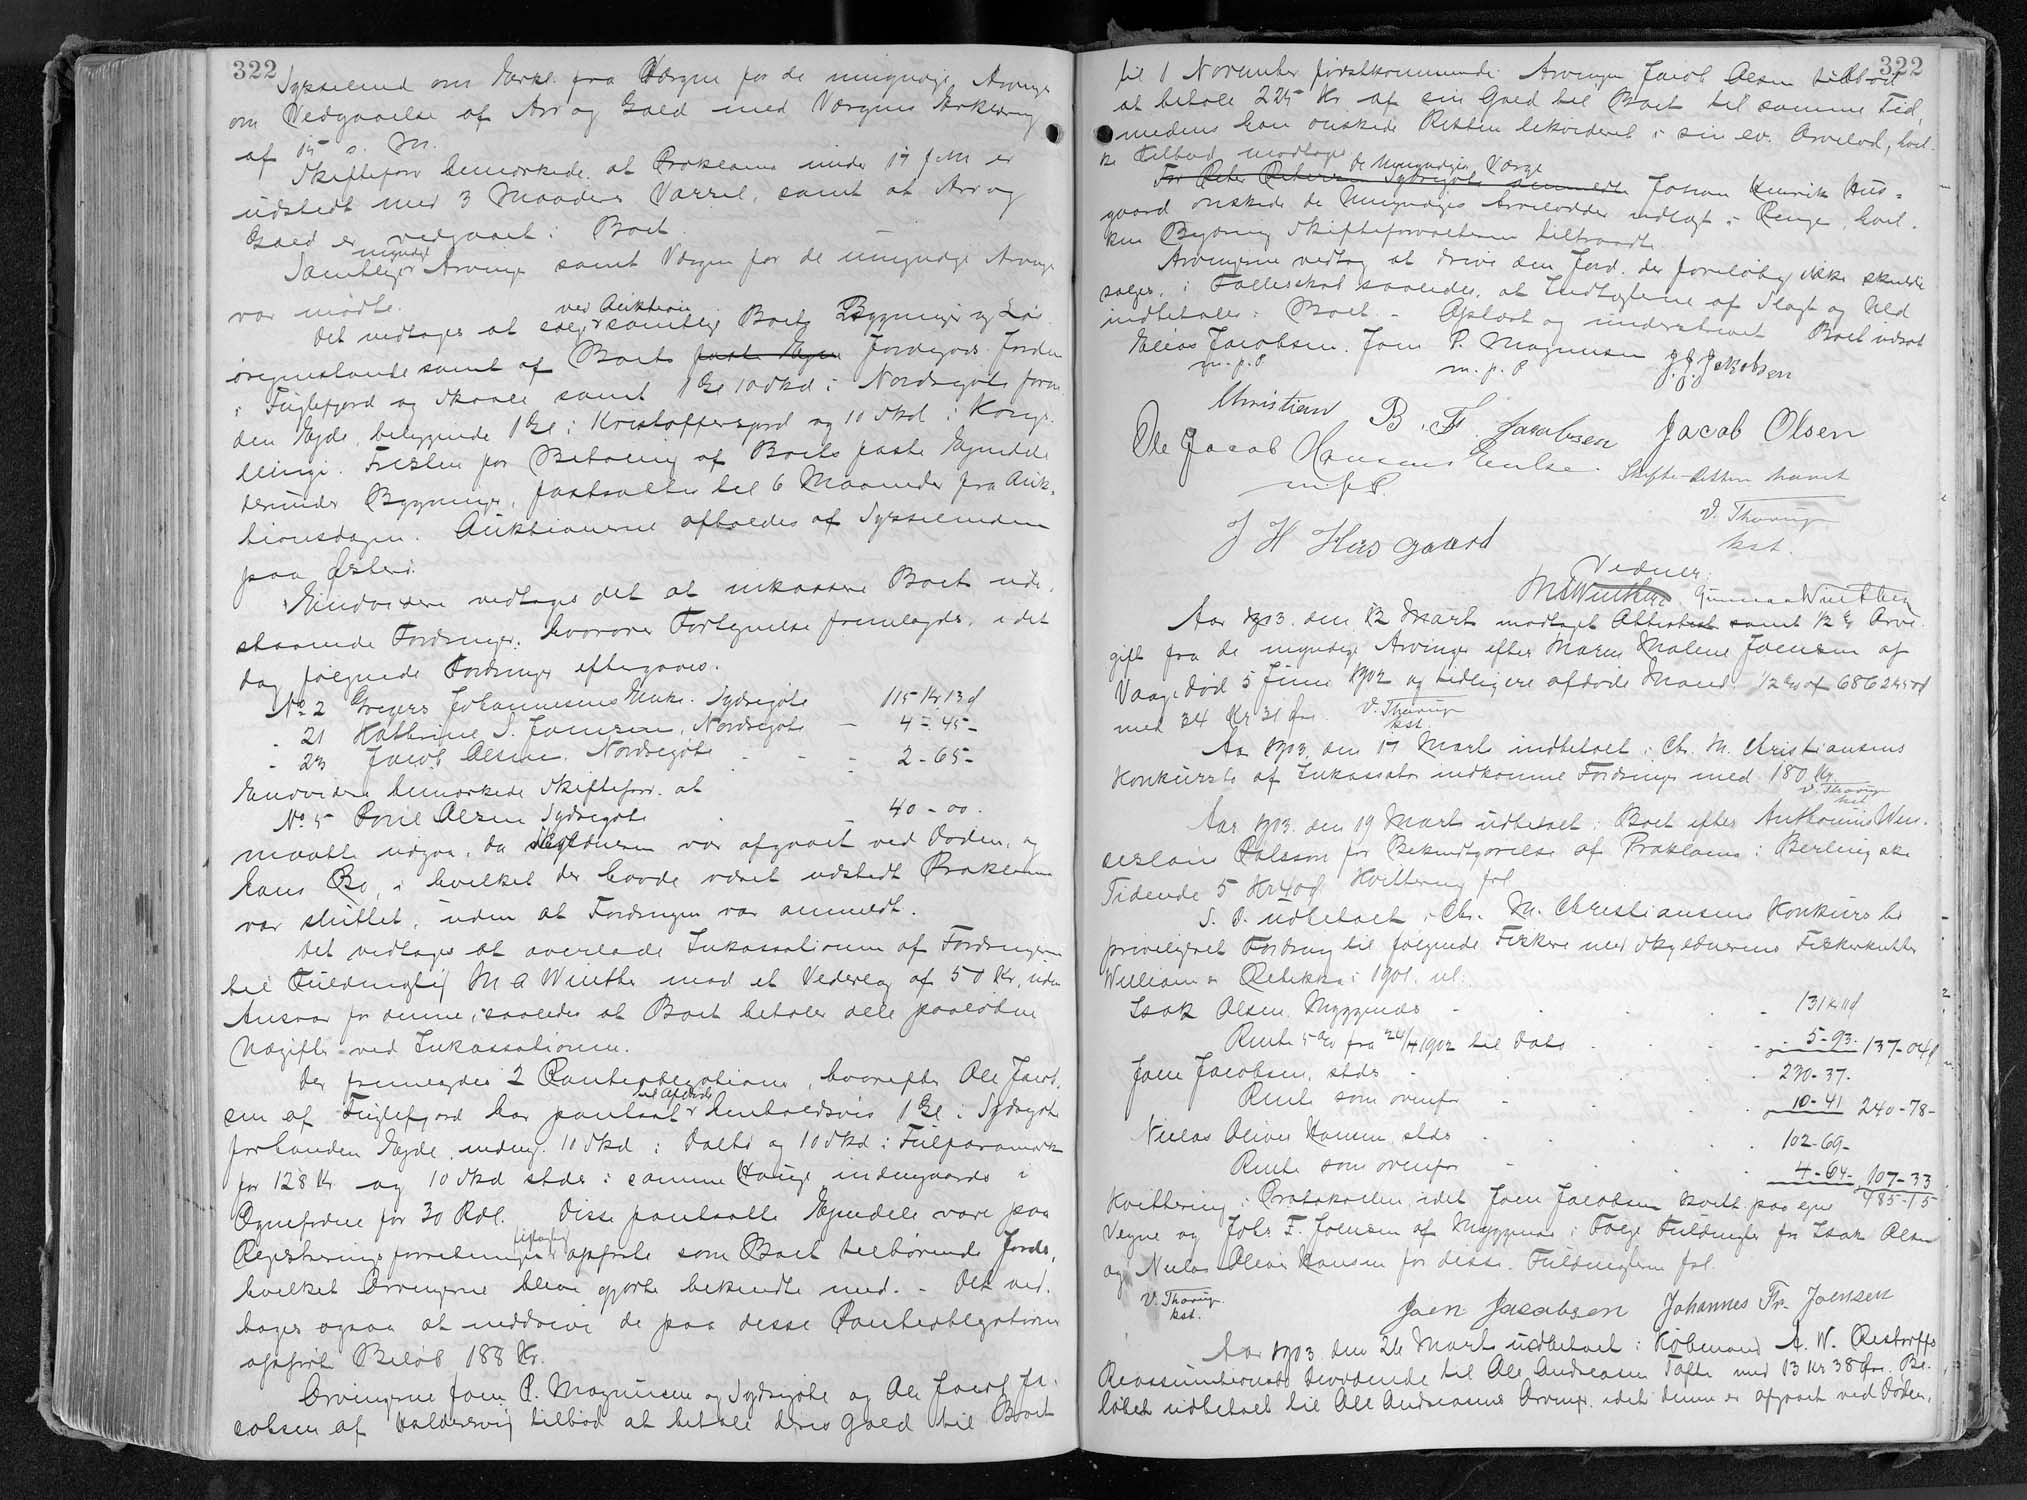 322
Sysselmd om Erkl. fra Værgen for de umyndige Arvinger
om Vedgaaelse af Arv og Gæld med Værgens Erklæring
af 15 d. M.
Skifteforv bemærkede at Proklama under 17 f. M. er
udstedt med 3 Maaneders Varsel, samt at Arv og
Gæld er vedgaaet i Boet.
Samtlige myndige Arvinger samt Værgen for de umyndige Arvinger
var mødte.
Det vedtoges at sælge ved Auktion samtlige Boets Bygninger og Løs-
øregenstande samt af Boets faste Ejen Jordegods Jorden
i Fuglefjord og Skaale samt 1 Gl 10 Skd i Nordregøte foru-
den Ejde, beliggende 1 Gl i Kristoffersjord og 10 Skd i Konge-
Fristen for Betaling af Boets faste Ejendele
herunder Bygninger, fastsattes til 6 Maaneder fra Auk-
tionsdagen. Auktionerne afholdes af Sysselmden
paa Østerø.
Endvidere vedtoges det at inkassere Boets ude-
staaende Fordringer, hvorover Fortegnelse fremlagdes, idet
dog følgende Fordringer eftergaves.
No. 2 Gregers Johannesens Enke. Sydregøte 115 Kr 13 Ø
- 21 Kathrine S. Joensen, Nordregøte - 4 - 45 -
- 23 Jacob Olsen. Nordregøte - - - 2 - 65 -
Endvidere bemærkede Skifteforv. at
No. 5 Poul Olsen Sydregøte - - 40 - 00.
maatte udgaa, da Skyldneren var afgaaet ved Døden, og
hans Bo, i hvilket der havde været udstedt Proklama
var sluttet, uden at Fordringen var anmeldt.
Det vedtoges at overlade Inkassationen af Fordringerne
til Fuldmægtig M A Winther mod et Vederlag af 50 Kr, uden
Ansvar for denne, saaledes at Boet betaler alle paaløbne
Udgifter ved Inkassationen.
Der fremlagdes 2 Panteobligationer, hvorefter Ole Jacob-
sen af Fuglefjord har pantsat til Afdøde henholdsvis 1 Gl i Sydregøte
forhenden Ejde, 10 Skd i og 10 Skd i
for 128 Kr og 10 Skd stds i samme Hauge indengaards i
for 30 Rdl. Disse pantsatte Ejendele vare paa
Registreringsforretningen fejlagtig opførte som Boet tilhørende Jorder,
hvilket Arvingerne bleve gjorte bekendte med. - Det ved-
toges ogsaa at inddrive de paa disse Panteobligationer
opførte Beløb 188 Kr.
Arvingerne Joen P. Magnussen og Sydregøte og Ole Jacob Ja-
cobsen af Haldersvig tilbød at betale deres Gæld til Boet
322
til 1 November førstkommende. Arvingen Jacob Olsen tilbød
at betale 225 Kr. af sin Gæld til Boet til samme Tid,
medens han ønskede Resten likvideret i sin ev. Arvelod, hvil-
ke Tilbud modtoges.
For Peter Petersen Sydregøte anmeldte de Umyndiges Værge Johan Henrik Hus-
gaard ønskede de Umyndiges Arvelodder udlagt i Penge, hvil-
ken Begæring Skifteforvalteren tiltraadte.
Arvingerne vedtog at drive den Jord, der foreløbig ikke skulde
sælges, i Fællesskab saaledes, at Indtægterne af Slagt og Uld
indbetales i Boet. - Oplæst og underskrevet Boet udsat
Elias Jacobsen. Joen P. Magnussen J. J. Jakobsen
m. p. P. m. p. P
Christian B. F. Jacobsen Jacob Olsen
Ole Jacob Hansens Enke. Skifte-Retten hævet
m. p. P. V. Thorup
J H Husgaard kst.
Vidner:
MAWinther Gunnar Winther
Aar 1903. den 12 Marts modtaget Attestest samt 1/2 % Arve-
gift fra de myndige Arvinger efter Maren Malene Joensen af
Vaag død 5 Juni 1902 og tidligere afdøde Mand. 1/2 % af 6862 Kr
med 34 Kr 31 Øre. V. Thorup
kst.
Aar 1903 den 17 Marts indbetalt i Chr. M. Christiansens
Konkursbo af Inkassator indkomne Fordringer med 180 Kr.
V. Thorup
kst
Aar 1903 den 19 Marts udbetalt i Boet efter Anthonius Wen-
ceslaus Palsson for Bekendtgørelse af Proklama i Berlingske
Tidende 5 Kr 40 Ø Kvittering fol.
S. D. udbetalt i Chr. M. Christiansens Konkursbo
privilegeret Fordring til følgende Fiskere med Skyldnerens Fiskerkutter
William & Rebekka i 1901. nl:
Isak Olsen. Myggenæs - - - - 131 Kr 11 Ø
Rente 5 % fra 24/4 1902 til Dato - - - 5-93. 137-04 Ø
Joen Jacobsen, stds - - - 230-37.
Rente som ovenfor - - - 10-41 240-78-
Niclas Oliver Hansen stds - - - 102-69-
Rente som ovenfor - - - 4-64- 107-33
485-15
Kvittering i Protokollen idet Joen Jacobsen kvitt. paa egne
Vegne og Johs F. Joensen af Myggenæs i Følge Fuldmagter fra Isak Olsen
og Niclas Oliver Hansen for disse. Fuldmagten fol.
V. Thorup.
kst.
Joen Jacobsen Johannes Fr. Joensen
Aar 1903 den 26 Marts udbetalt i Købmand A. W. Restorffs
Reassumtionsbo Dividende til Ole Andreasen Tofte med 13 Kr 38 Øre. Be-
løbet udbetalt til Ole Andreasens Arvinger, idet denne er afgaaet ved Døden.